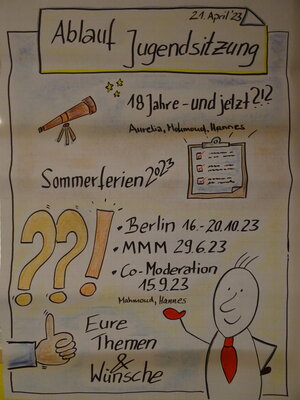 21. April '23
Ablauf Jugendsitzung
18 Jahre - und jetzt?!?
Aurelia, Mahmoud, Hannes
Sommerferien 2023
??!
• Berlin 16.-20.10.23
• MMM 29.6.23
• Co-Moderation
15.9.23
Mahmoud, Hannes
Eure
Themen
&
Wünsche